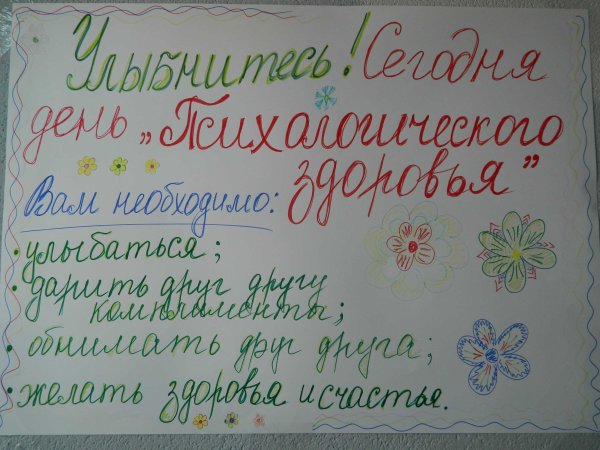 Улыбнитесь! Сегодня
день „Психологического
здоровья”
Вам необходимо:
• улыбаться;
• дарить друг другу
комплименты;
• обнимать друг друга;
• желать здоровья и счастье.